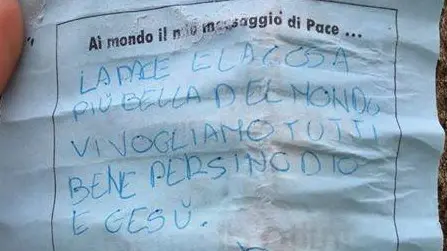 Al mondo il mio messaggio di Pace ...
LA PACE E LA COSA
PIÙ BELLA DEL MONDO
VI VOGLIAMO TUTTI
BENE PERSINO DIO
E GESÙ.